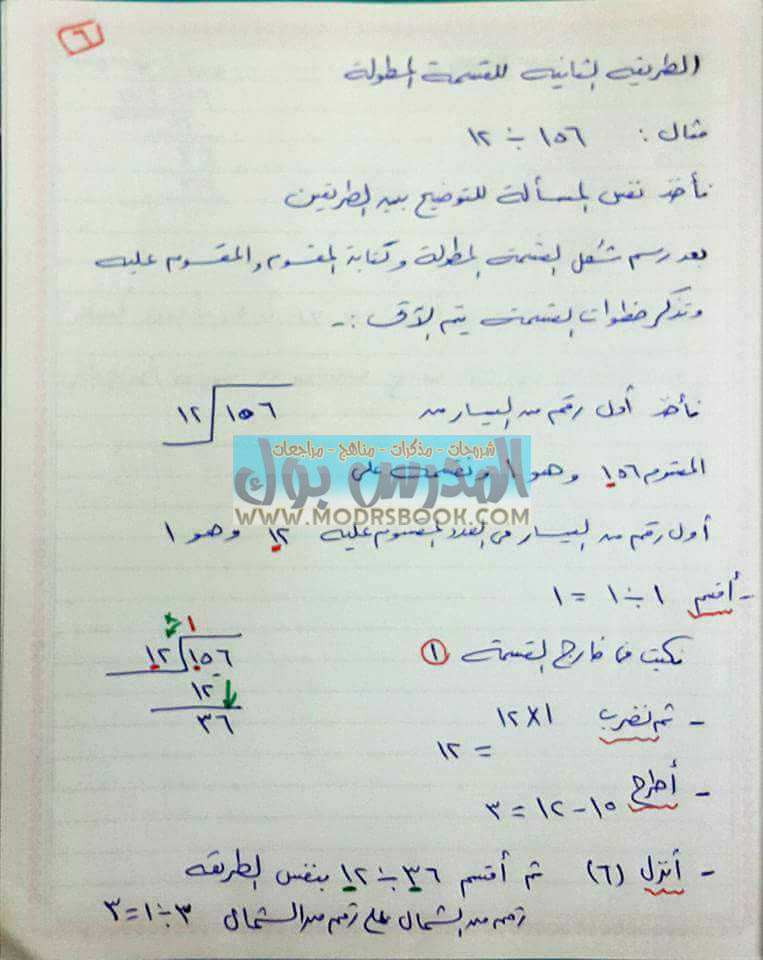 ٦
الطريقة الثانية للقسمة المطولة
مثال : ١٥٦ ÷ ١٢
نأخذ نفس المسألة للتوضيح بين الطريقتين
بعد رسم شكل القسمة المطولة وكتابة المقسوم والمقسوم عليه
ونذكر خطوات القسمة يتم الآتى :-
نأخذ أول رقم من اليسار من
١٢ ١٥٦
شروحات - مذكرات - مناهج - مراجعات
المدرس بوك
WWW.MODRSBOOK.COM
المقسوم ١٥٦ وهو ١ ونقسمه على
أول رقم من اليسار فى العدد المقسوم عليه ١٢ وهو ١
- أقسم ١ ÷ ١ = ١
نكتب فى خارج القسمة ١
١
١٢ ١٥٦
١٢
٣٦
- ثم نضرب ١ × ١٢
= ١٢
- أطرح ١٥ - ١٢ = ٣
- أنزل (٦) ثم أقسم ٣٦ ÷ ١٢ بنفس الطريقه
رقم من الشمال على رقم من الشمال ٣ ÷ ١ = ٣